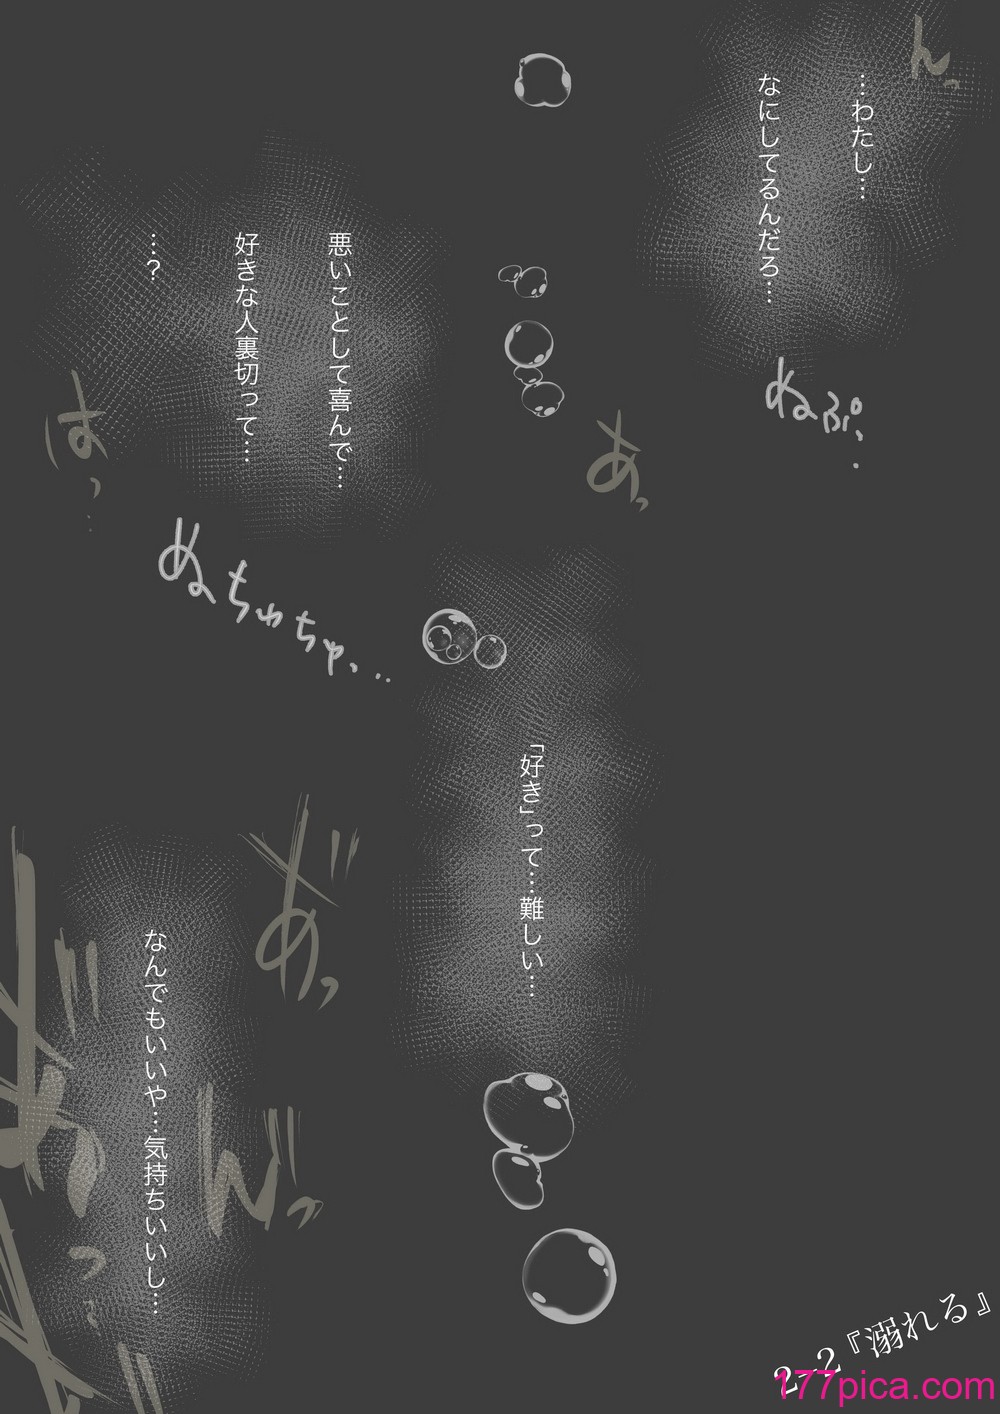 んっ…
…わたし…
なにしてるんだろ…
ねぷっ
あっ
悪いことして喜んで…
好きな人裏切って…
…？
はっ…
ぬちゅちゅっ…
「好き」って…難しい…
あ゛っ
なんでもいいや…気持ちいいし…
ん゛っ
2-2『溺れる』
177pica.com